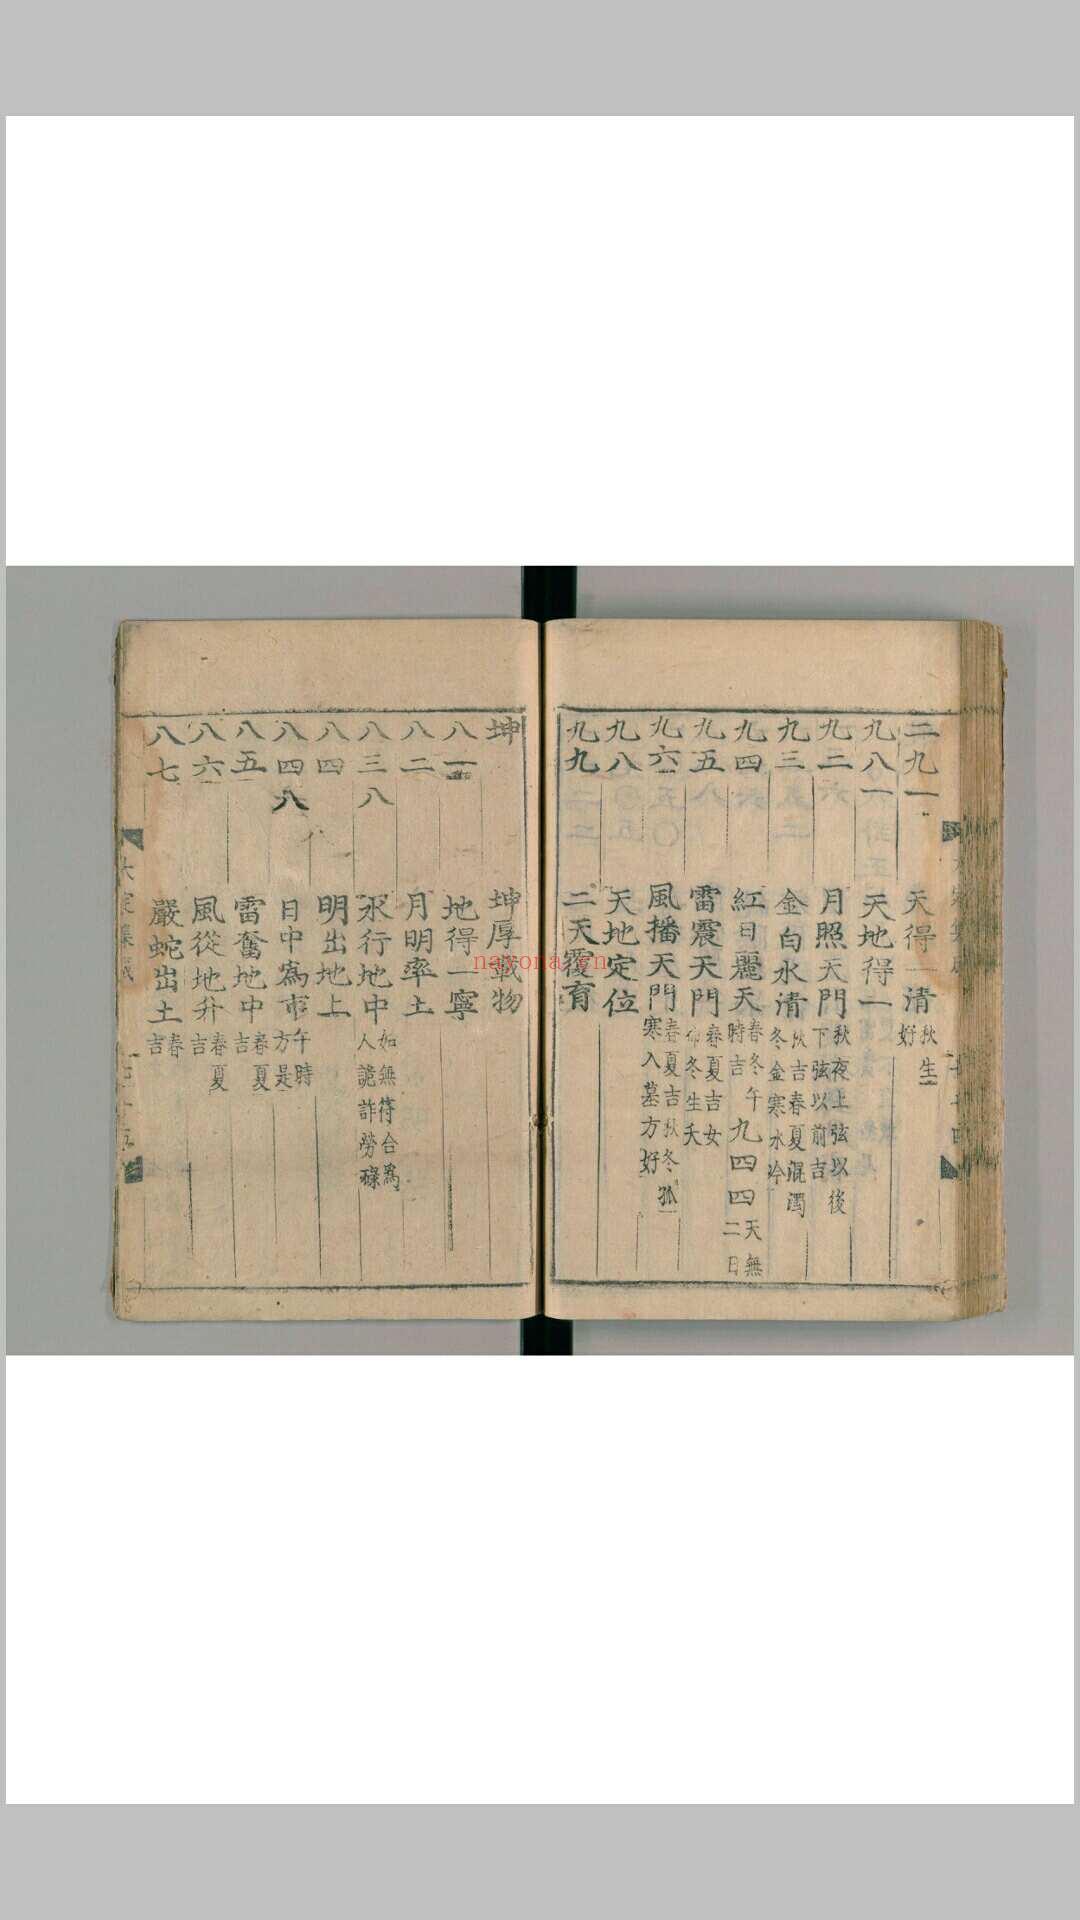 二九一 天得一清 秋生好
九八一 天地得一
九二 月照天門 秋夜上弦以後下弦以前吉
九三 金白水清 秋吉春夏混濁冬金寒水冷
九四 紅日麗天 春冬午時吉 九四四 天無二日
九五 雷震天門 春夏吉女命冬生夭
九六 風播天門 春夏吉秋冬孤寒入墓方好
九八 天地定位
九九 二天覆育
坤 坤厚載物
八一 地得一寧
八二 月明率土
八三八 水行地中 如無符合為人詭詐勞碌
八四 明出地上
八四八 日中為市 午時方是
八五 雷奮地中 春夏吉
八六 風從地升 春夏吉
八七 嚴蛇出土 春吉
nayona.cn